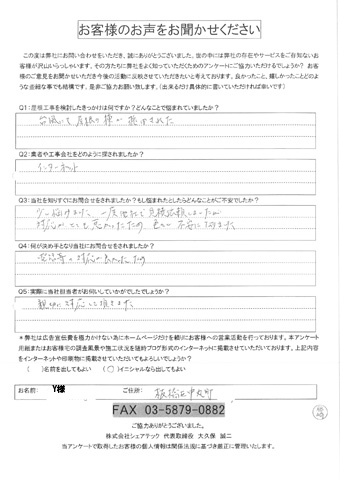 お客様のお声をお聞かせください
この度は弊社にお問い合わせをいただき、誠にありがとうございました。世の中には弊社の存在やサービスをご存知ないお
客様が沢山いらっしゃいます。その方たちに弊社をよく知っていただくためのアンケートにご協力いただけるでしょうか？お客
様のご意見をお聞かせいただき今後の活動に反映させていただきたいと考えております。良かったこと、嬉しかったことどのよ
うな些細な事でも結構です、是非ご協力お願い致します。（出来るだけ具体的に書いていただければ幸いです）
Q1：屋根工事を検討したきっかけは何ですか？どんなことで悩まれていましたか？
台風にて屋根の棟が飛ばされた
Q2：業者や工事会社をどのように探されましたか？
インターネット
Q3：当社を知りすぐにお問合せをされましたか？もし悩まれたとしたらどんなことがご不安でしたか？
対応がとても悪かったため 不安になりました
Q4：何が決め手となり当社にお問合せをされましたか？
対応が良かったため
Q5：実際に当社担当者がお伺いしていかがでしたでしょうか？
親切に対応して頂きました
＊弊社は広告宣伝費を極力かけない為にホームページだけを頼りにお客様への営業活動を行っております。本アンケート
用紙またはお客様宅の調査風景や施工状況を随時ブログ形式のインターネットに掲載させていただいております。上記内容
をインターネットや印刷物に掲載させていただいてもよろしいでしょうか？
（　）名前を出してもよい　（○）イニシャルなら出してもよい
お名前：　Y様　ご住所：　板橋区中丸町
FAX 03-5879-0882
ご協力ありがとうございました。
株式会社シェアテック　代表取締役　大久保　誠二
当アンケートで取得したお客様の個人情報は関係法規に基づき厳正に管理いたします。